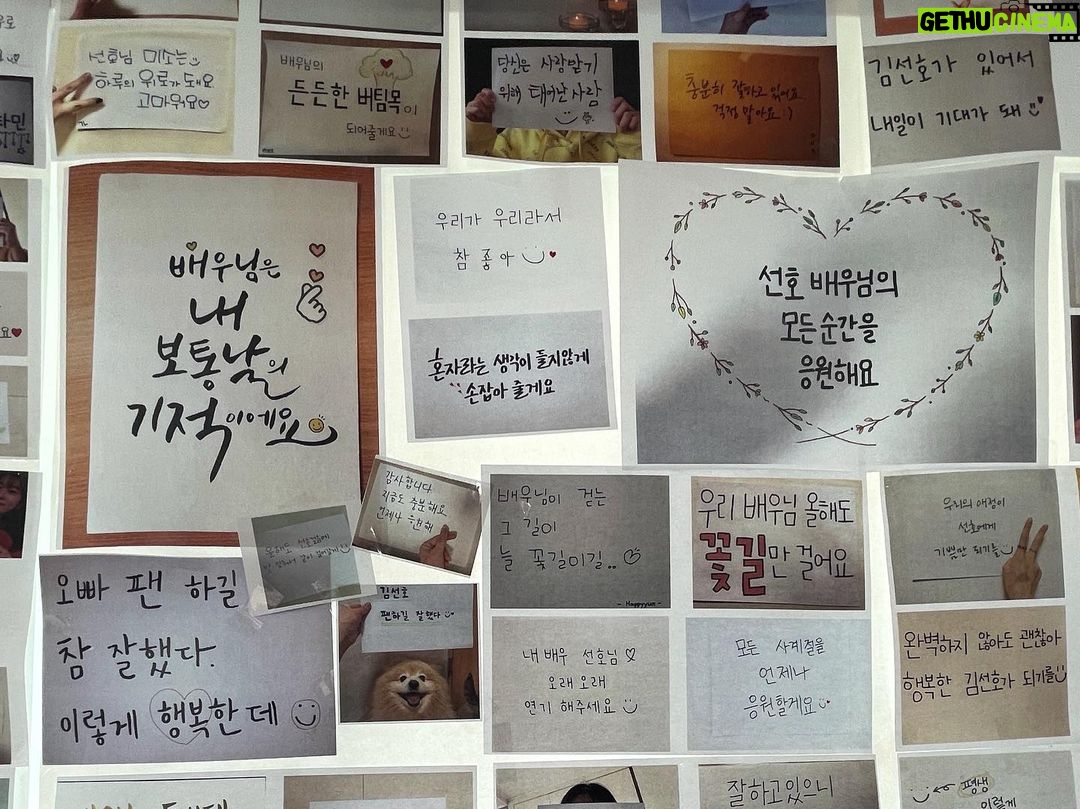 GETHU CINEMA
선호님 미소는
하루의 위로가 돼요
고마워요♡
배우님의
든든한 버팀목이
되어줄게요
당신은 사랑받기
위해 태어난 사람
충분히 잘하고 있어요
걱정 말아요 :)
김선호가 있어서
내일이 기대가 돼
배우님은
내
보통날의
기적이에요
우리가 우리라서
참 좋아
혼자라는 생각이 들지않게
손잡아 줄게요
선호 배우님의
모든 순간을
응원해요
감사합니다
지금도 충분해요
언제나 응원해
배우님이 걷는
그 길이
늘 꽃길이길..
- Happyyun -
우리 배우님 올해도
꽃길만 걸어요
우리의 애정이
선호에게
기쁨만 되기를
오빠 팬 하길
참 잘했다.
이렇게 행복한 데
김선호
팬하길 잘했다
내 배우 선호님♡
오래 오래
연기 해주세요
모든 사계절을
언제나
응원할게요
완벽하지 않아도 괜찮아
행복한 김선호가 되기를
잘하고있으니
평생
이렇게